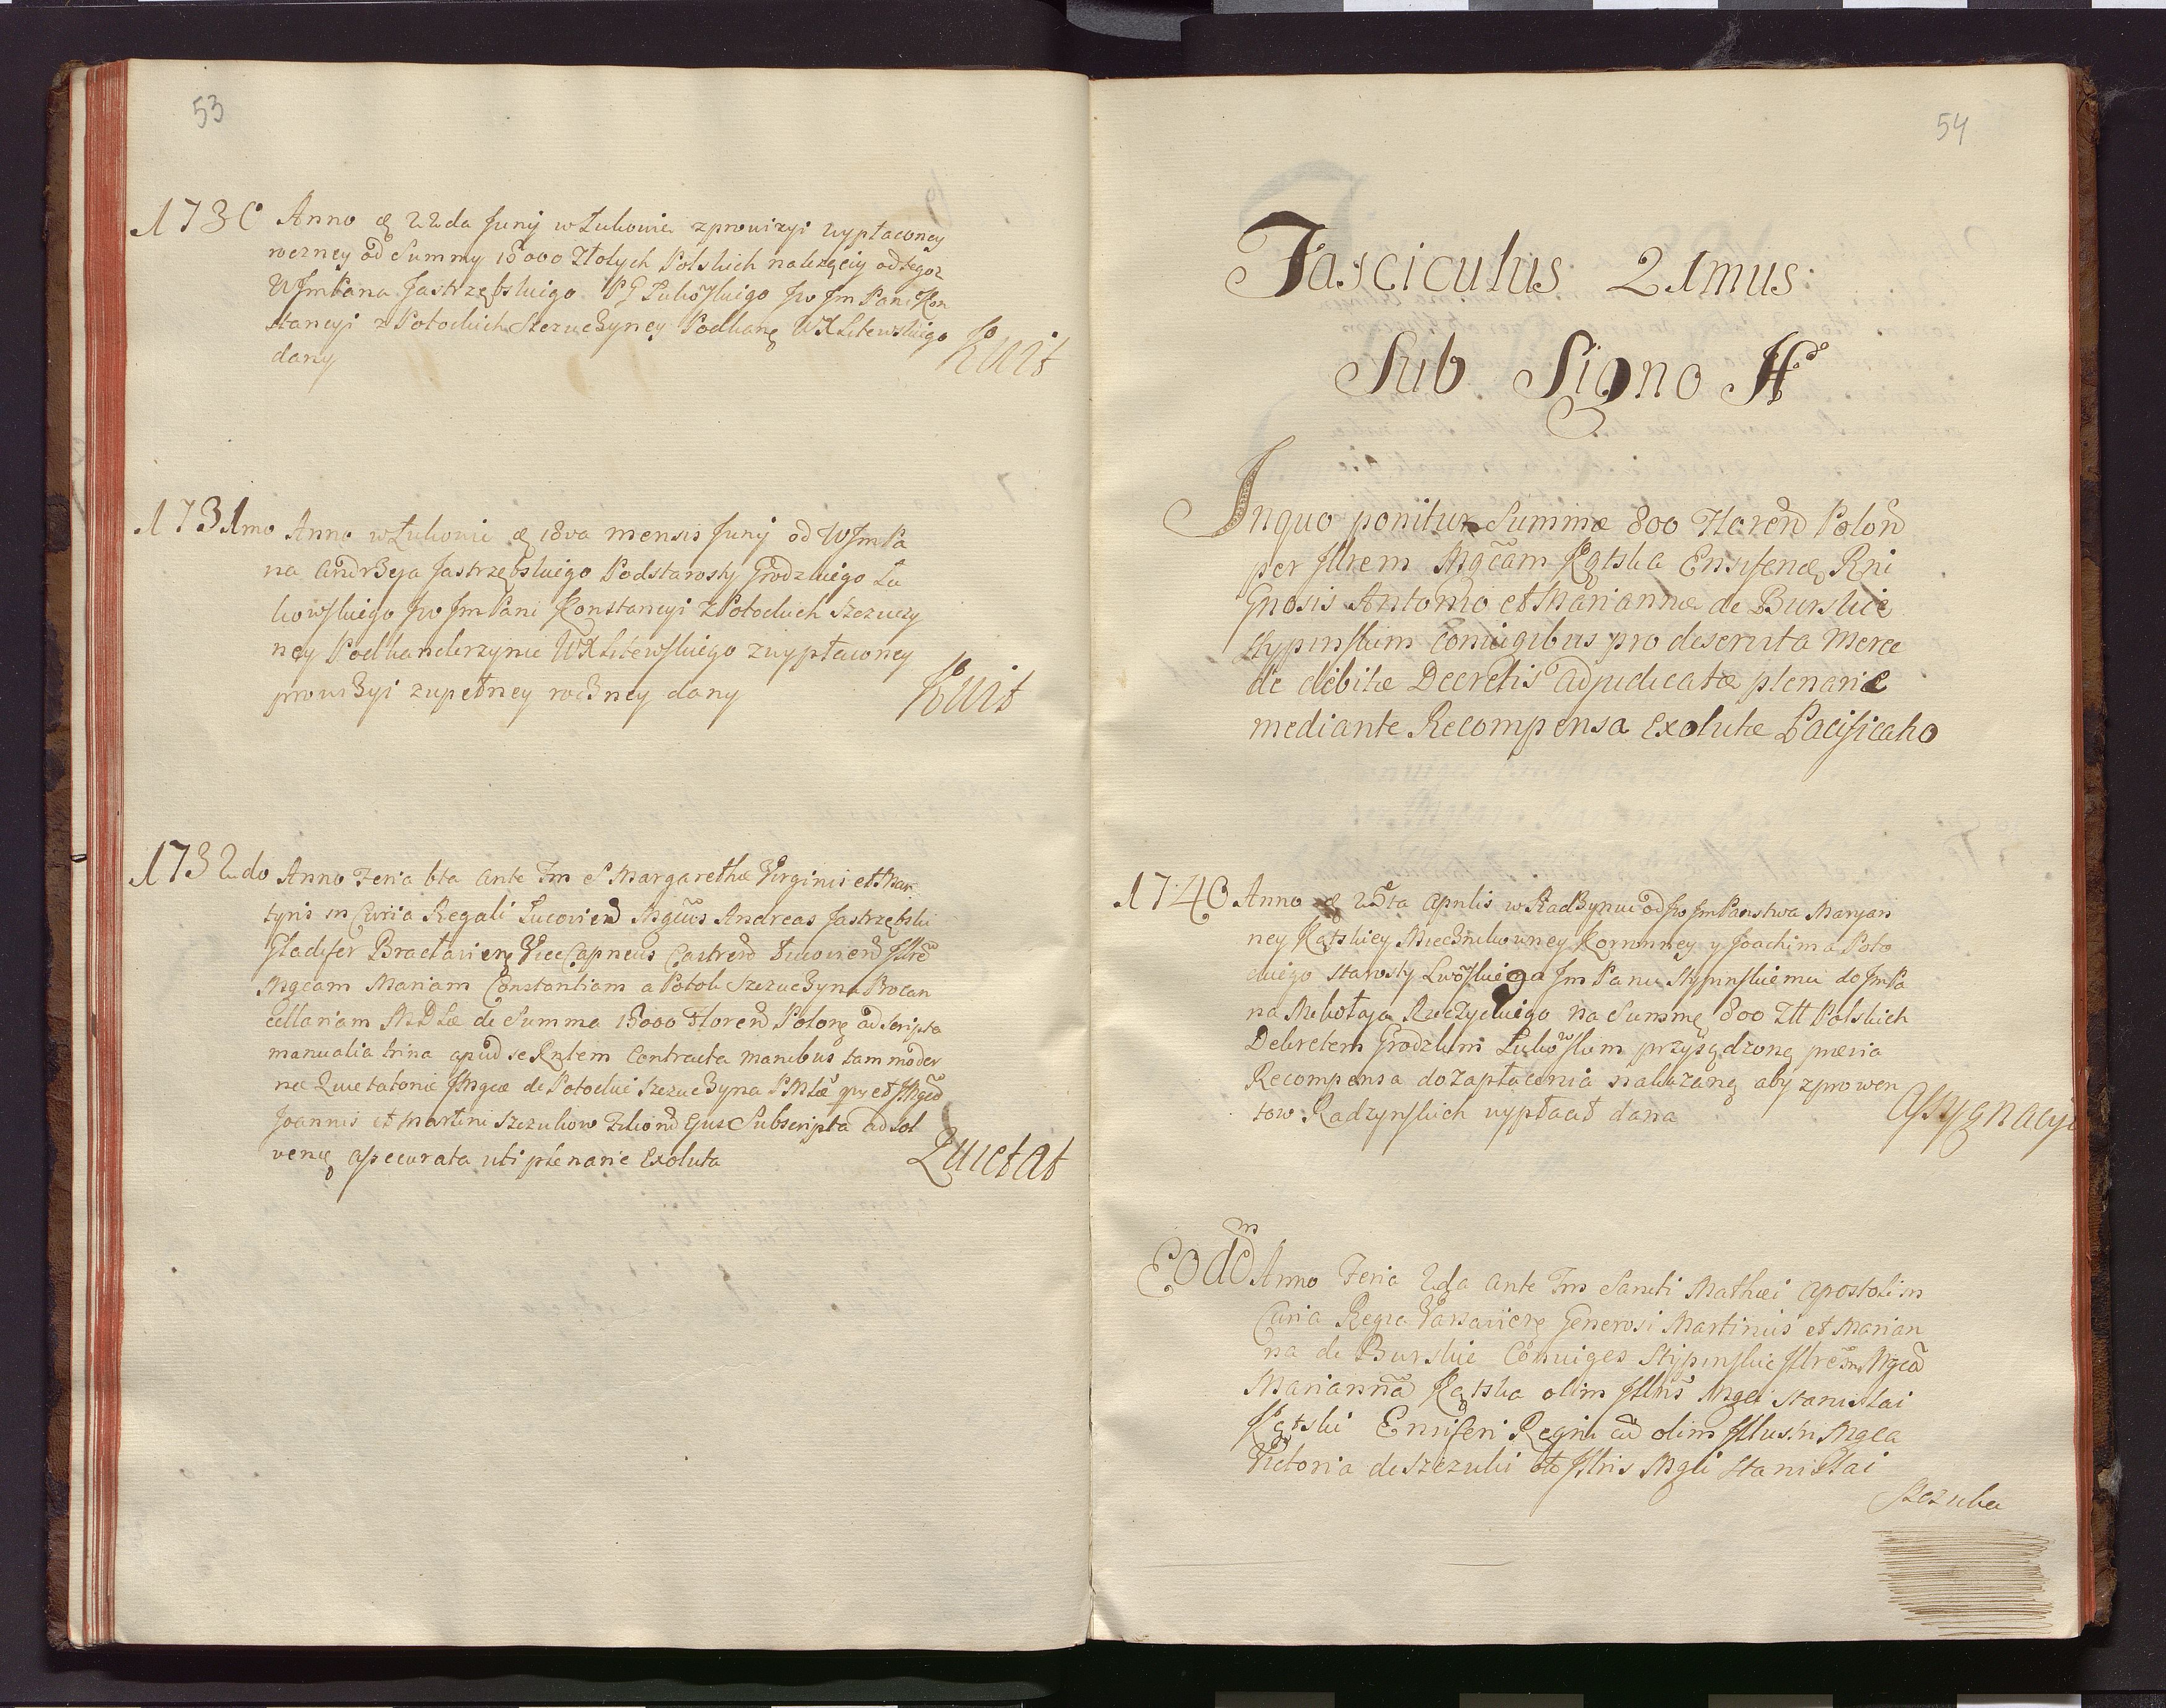 53
1730 Anno d 22da Junÿ w Łukowie z prowizyi wypłaconey
roczney od Summy 15000 Złotych Polskich należącey od tegoz
WJmPana Jastrzębskiego PG Łukowskiego Jw Jm Pani Kon
stancyi z Potockich Szczuczyney Podkanc WXLitewskiego
dany
Kwit
1731mo Anno w Łukowie d 18va mensis Junÿ od WJmPa
na Andrzeja Jastrzębskiego Podstarosty Grodzkiego Łu
kowskiego Jw Jm Pani Konstancyi z Potockich Szczuczy
ney Podkanclerzynie WXLitewskiego z wypłaconey
prowizyi zupełney roczney dany
Kwit
1732do Anno Feria 6ta ante Fm S Margarethæ Virginis et Mar
tyris in Curia Regali Lucovien Mgcus Andreas Jastrzębski
Gladifer Braclavien Vice Capneus Castren Lucovien Jllrem
Mgcam Mariam Constantiam a Potok Szczuczyna Procan
cellariam MDLæ de Summa 15000 Floren Polon ad scripta
manualia trina apud se Rntem Contracta manibus tam moder
næ Quietatoriæ Mgcæ de Potockie Szczuczyna PMLæ qm et Mgcor
Joannis et Martini Szczukow Filior Ejus Subscripta ad sol
ven assecurata uti plenarie Exoluta
Quietat
54
Fasciculus 21mus
Sub Signo H
Inquo ponitur Summæ 800 Floren Polon
per Jllrem Mgcam Kątska Ensiferæ Rni
Gnosis Antonio et Mariannæ de Burskie
Stypinskim Coniugibus pro deservita Merce
de debitæ Decretis Adjudicatæ plenarie
mediante Recompensa Exolutæ Pacificatio
1740 Anno d 25ta Aprilis w Radzynie od Jw Jm Państwa Maryan
ney Kątskiey Miecznikowney Koronney y Joachima Poto
ckiego Starosty Lwoskiego Jm Panu Stypinskiemu do JmPa
na Mikołaja Rzeczyckiego na Summę 800 Złł Polskich
Dekretem Grodzkim Łukowskim przysądzoną prævia
Recompensa do Zapłacenia nakazaną aby z prowen
tow Radzynskich wypłacił dana
Assygnacya
Eodem Anno Feria 2da ante Fm Sancti Mathæi Apostoli in
Curia Regia Varsavien Generosi Martinus et Marian
na de Burskie Coniuges Stÿpinskie Jllrem Mgcam
Mariannam Kątska olim Jllris Mgci Stanislai
Kątski Ensiferi Regni cum olim Jllustri Mgca
Victoria de Szczuki olim Jllris Mgci Stanislai
Szczuka